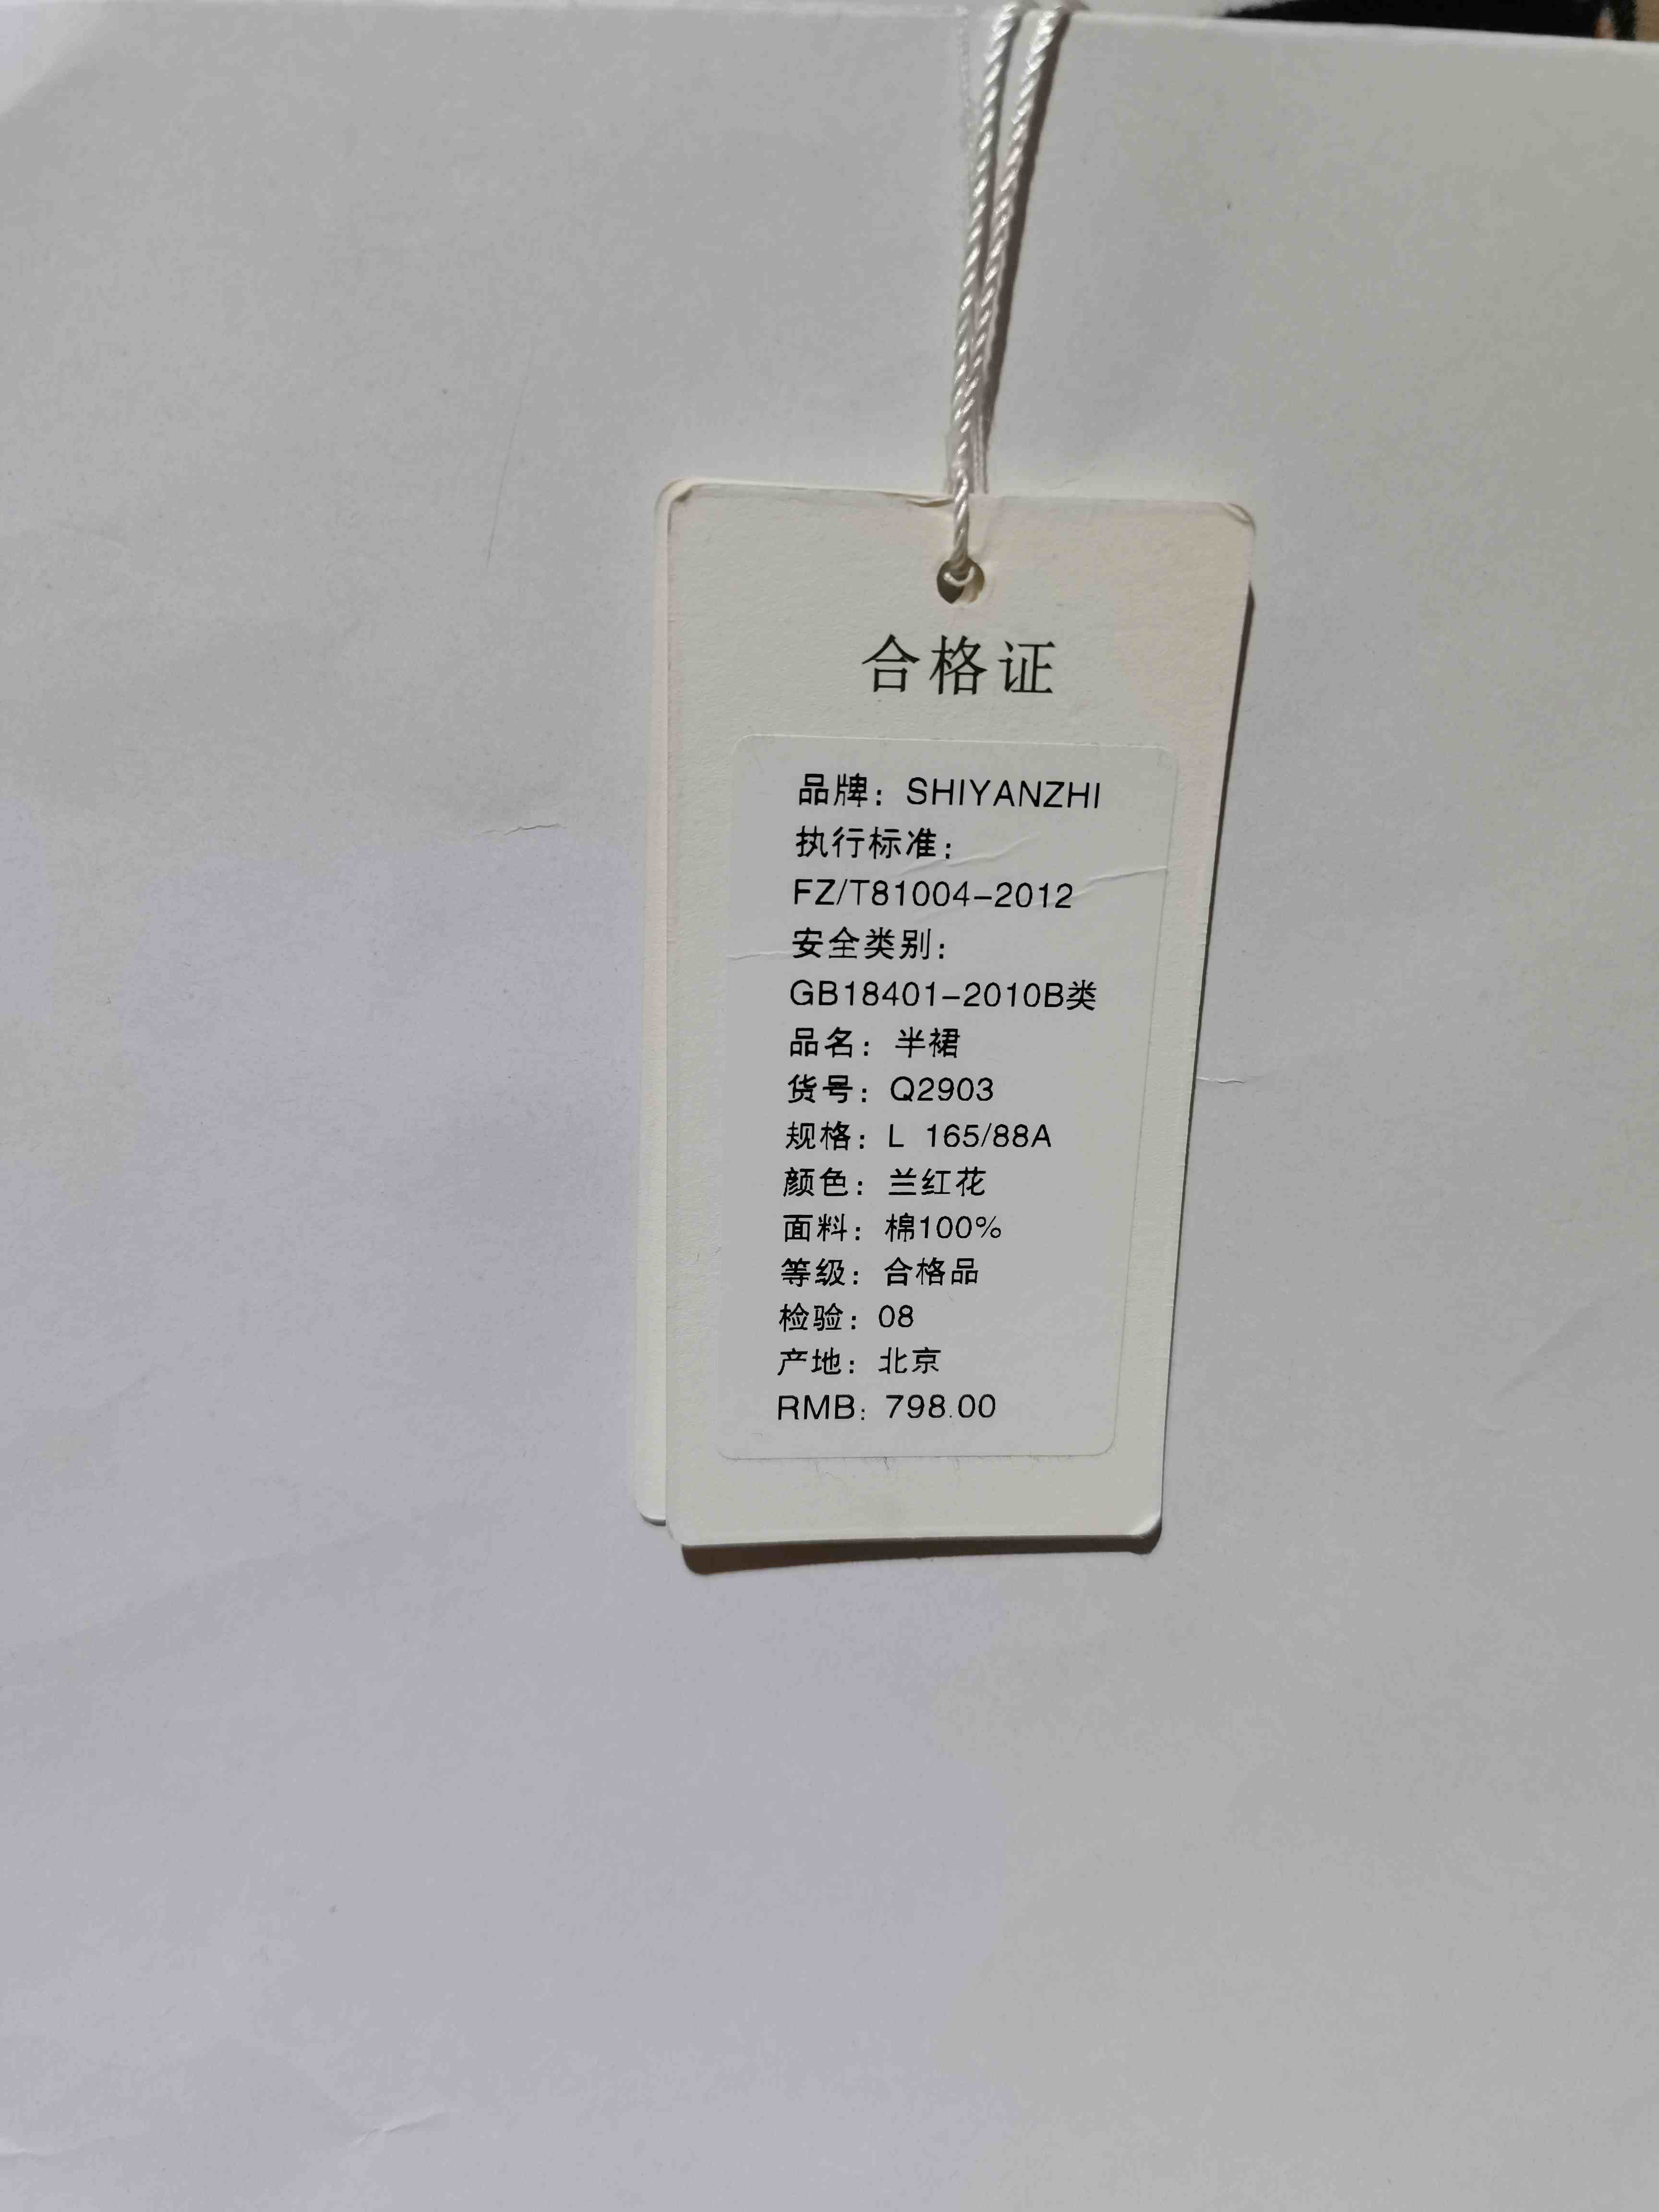 合格证
品牌：SHIYANZHI
执行标准：
FZ/T81004-2012
安全类别：
GB18401-2010B类
品名：半裙
货号：Q2903
规格：L 165/88A
颜色：兰红花
面料：棉100%
等级：合格品
检验：08
产地：北京
RMB：798.00